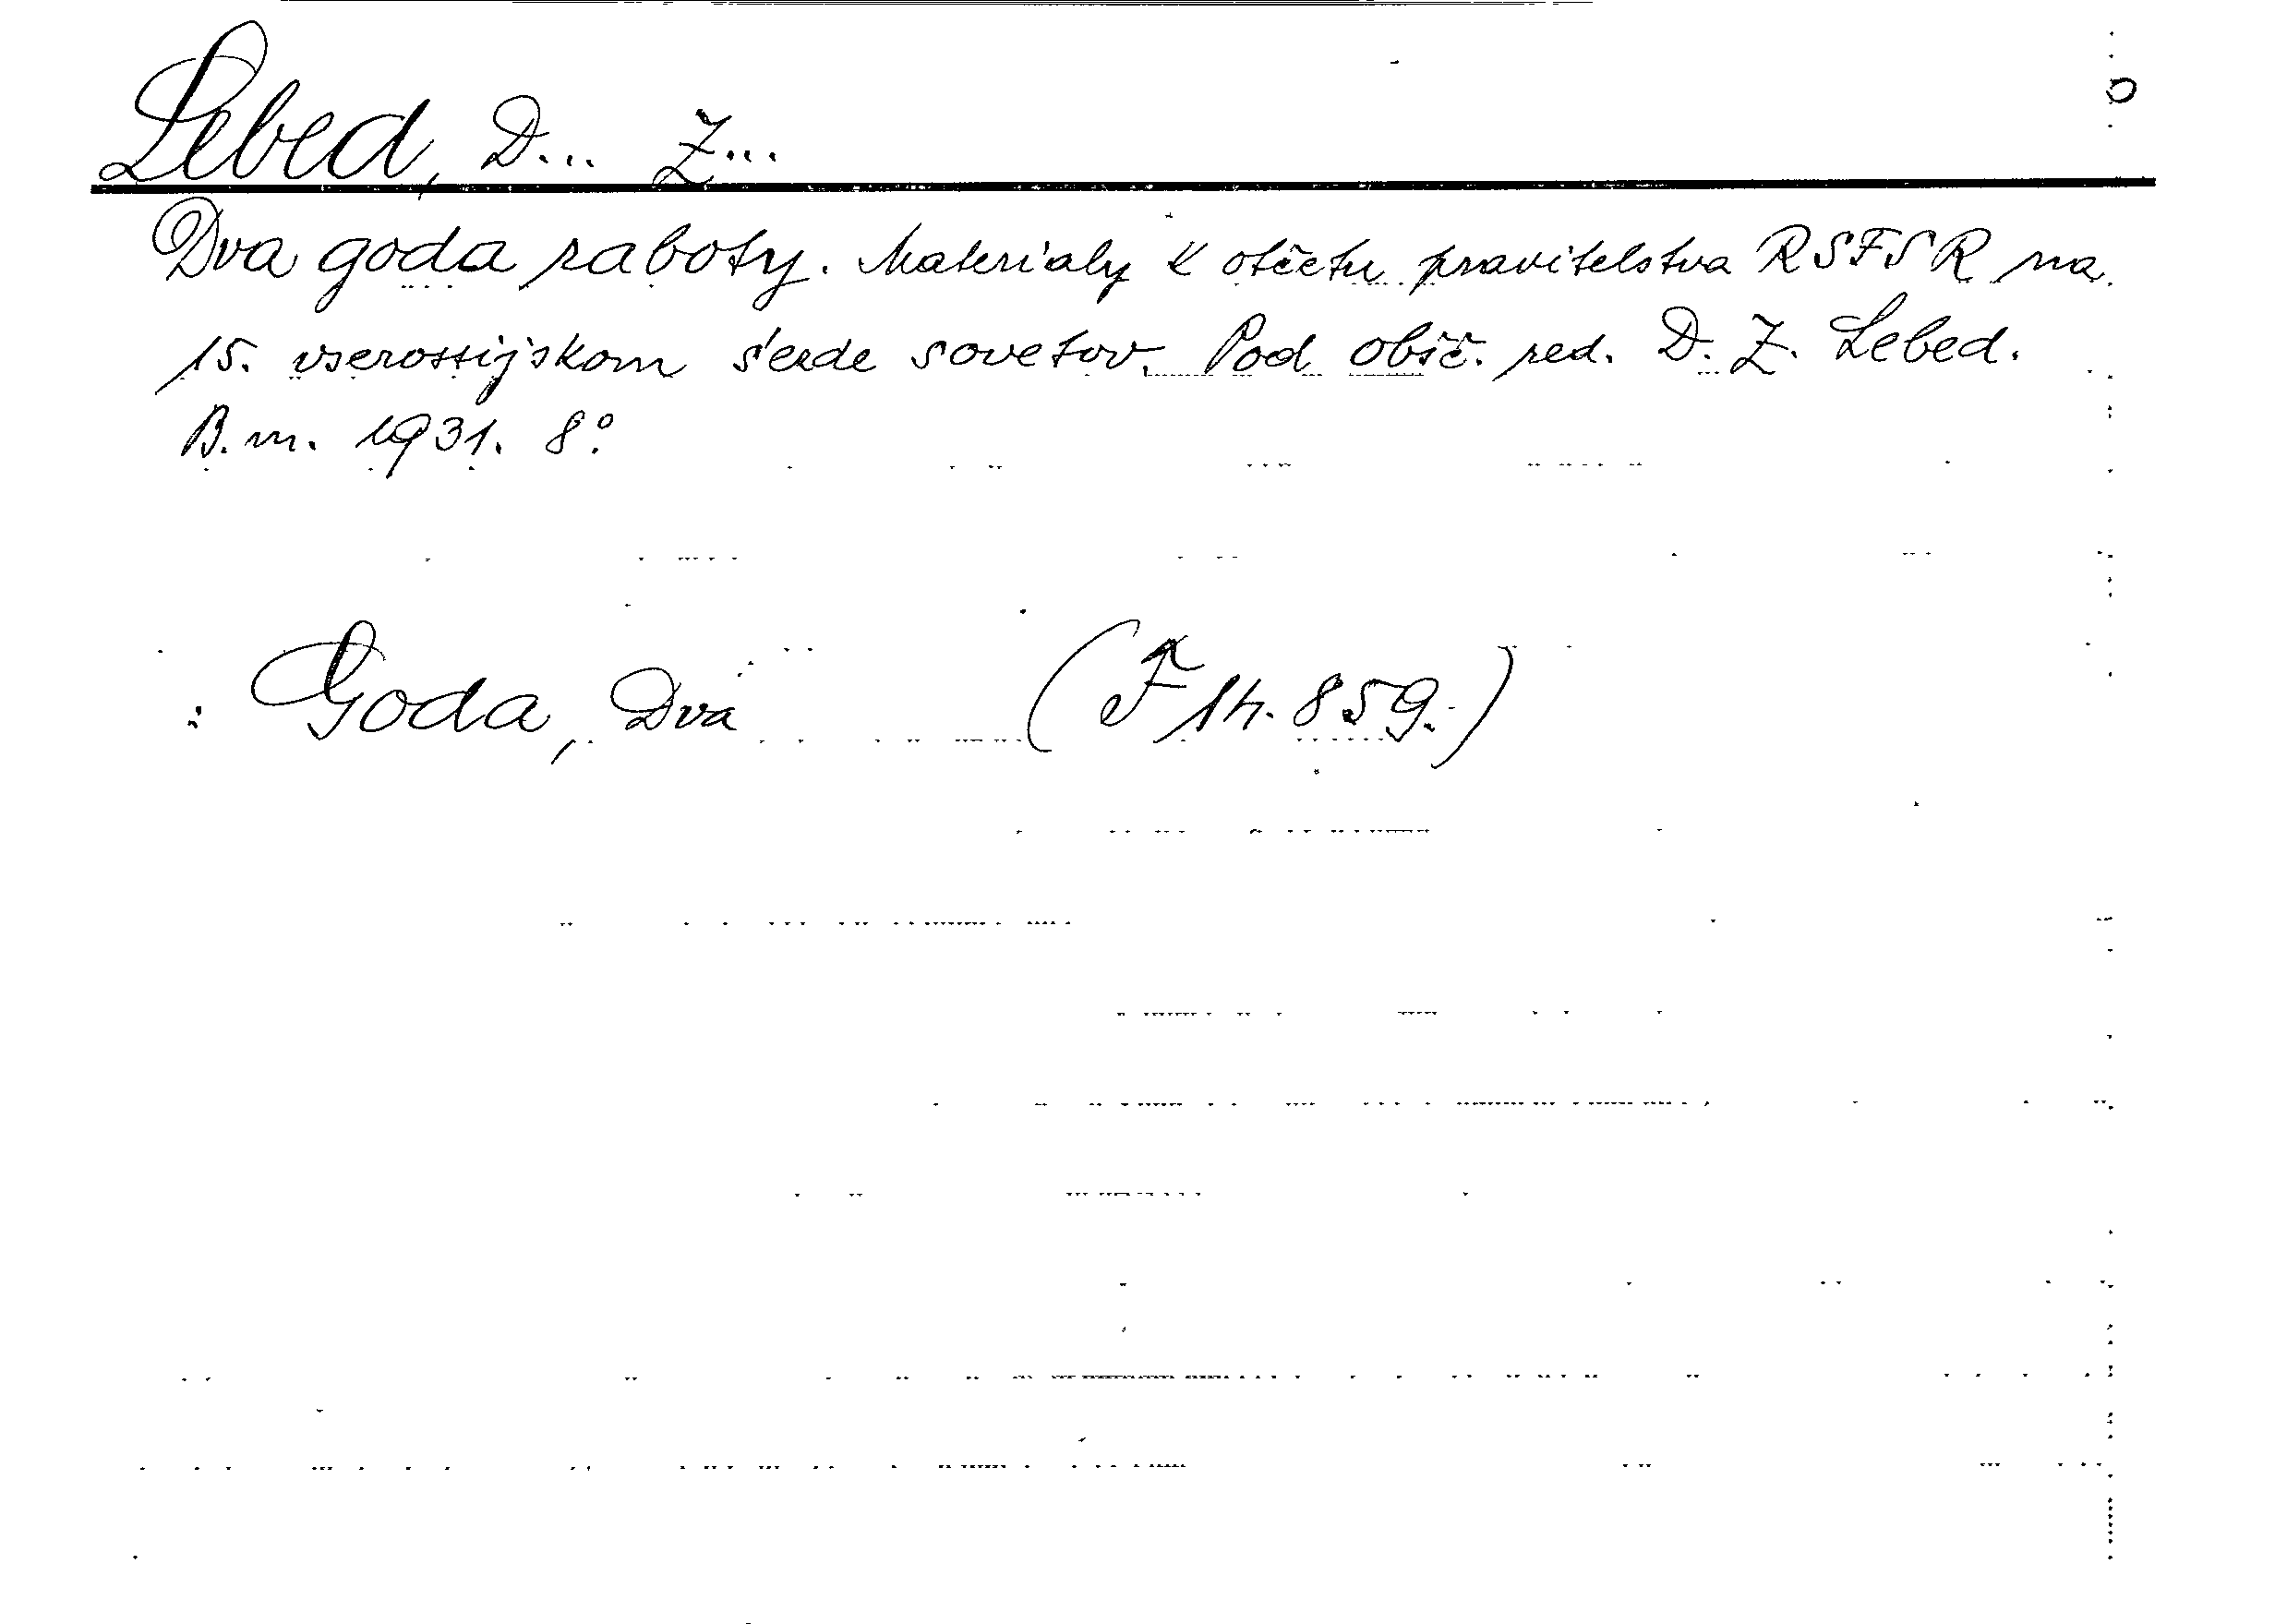 Lebed, D... Z...
Dva goda raboty. Materialy k otčetu pravitelstva RSFSR na
15. vserossijskom s'ezde sovetov. Pod obšč. red. D. Z. Lebed.
B. m. 1931. 8°.
: Goda, Dva (F 14.859.)